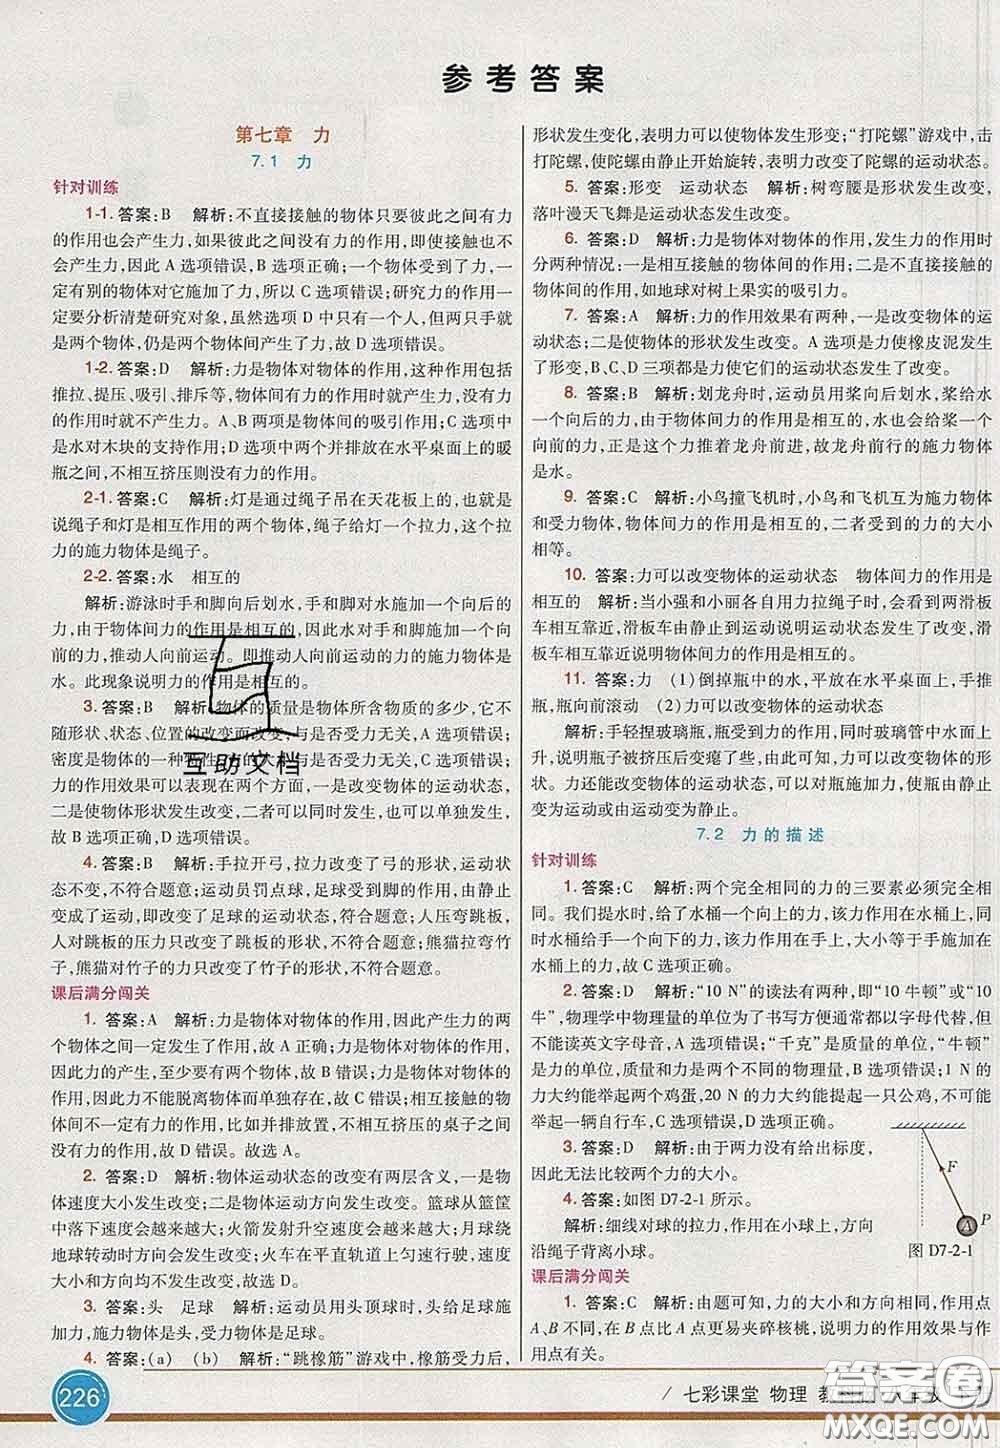 参考答案
第七章 力
7.1 力
针对训练
1-1. 答案:B 解析:不直接接触的物体只要彼此之间有力
的作用也会产生力,如果彼此之间没有力的作用,即使接触也不
会产生力,因此 A 选项错误,B 选项正确;一个物体受到了力,一
定有别的物体对它施加了力,所以 C 选项错误;研究力的作用一
定要分析清楚研究对象,虽然选项 D 中只有一个人,但两只手就
是两个物体,仍是两个物体间产生了力,故 D 选项错误。
1-2. 答案:D 解析:力是物体对物体的作用,这种作用包括
推拉、提压、吸引、排斥等,物体间有力的作用时才产生力,没有力
的作用时就不产生力。A、B 两项是物体间的吸引作用;C 选项中
是水对木块的支持作用;D 选项中两个并排放在水平桌面上的暖
瓶之间,不相互挤压则没有力的作用。
2-1. 答案:C 解析:灯是通过绳子吊在天花板上的,也就是
说绳子和灯是相互作用的两个物体,绳子给灯一个拉力,这个拉
力的施力物体是绳子。
2-2. 答案:水 相互的
解析:游泳时手和脚向后划水,手和脚对水施加一个向后的
力,由于物体间力的作用是相互的,因此水对手和脚施加一个向
前的力,推动人向前运动。即推动人向前运动的力的施力物体是
水。此现象说明力的作用是相互的。
3. 答案:B 解析:物体的质量是物体所含物质的多少,它不
随形状、状态、位置的改变而改变,与是否受力无关,A 选项错误;
密度是物体的一种特性,它的大小与是否受力无关,C 选项错误;
力的作用效果可以表现在两个方面,一是使物体运动状态改变,
二是使物体形状发生改变,二者可以同时发生,也可以单独发生,
故 B 选项正确,D 选项错误。
4. 答案:B 解析:手拉开弓,拉力改变了弓的形状,运动状
态不变,不符合题意;运动员罚点球,球在脚的作用下,由静止
变成了运动,即改变了足球的运动状态,符合题意;人压弯跳板,
人对跳板的压力只改变了跳板的形状,不符合题意;熊猫拉弯竹
子,熊猫对竹子的力只改变了竹子的形状,不符合题意。
课后满分闯关
1. 答案:A 解析:力是物体对物体的作用,因此产生力的两
个物体之间一定发生了作用,故 A 正确;力是物体对物体的作用,
因此力的产生,至少要有两个物体,故 B 错误;力是物体对物体的
作用,因此力不能脱离物体而单独存在,故 C 错误;相互接触的物体
间不一定有力的作用,比如并排放置,不相互挤压的桌子之间没
有力的作用,故 D 错误。故选 A。
2. 答案:D 解析:物体运动状态的改变有两层含义,一是物
体速度大小发生改变;二是物体运动方向发生改变。篮球从篮筐
中落下速度会越来越大;火箭发射升空速度会越来越大;月球绕
地球转动时方向会发生改变;火车在平直轨道上匀速行驶,速度
大小和方向均不发生改变,故选 D。
3. 答案:头 足球 解析:运动员用头顶球时,头给足球施
加力,施力物体是头,受力物体是足球。
4. 答案:(a) (b) 解析:“跳橡筋”游戏中,橡筋受力后,
形状发生变化,表明力可以使物体发生形变;“打陀螺”游戏中,击
打陀螺,使陀螺由静止开始旋转,表明力改变了陀螺的运动状态。
5. 答案:形变 运动状态 解析:树弯腰是形状发生改变,
落叶漫天飞舞是运动状态发生改变。
6. 答案:D 解析:力是物体对物体的作用,发生力的作用时
分两种情况:一是相互接触的物体间的作用;二是不相互接触的
物体间的作用,如地球对树上果实的吸引力。
7. 答案:A 解析:力的作用效果有两种,一是改变物体的运
动状态;二是改变物体的形状发生改变。A 选项是力使橡皮泥发生了
形变,B、C、D 三项都是力使它们的运动状态发生了改变。
8. 答案:B 解析:划龙舟时,运动员用桨向后划水,桨给水
一个向后的力,由于物体间力的作用是相互的,水也会给桨一个
向前的力,而正是这个力推着龙舟前进,故龙舟前行的施力物体
是水。
9. 答案:C 解析:小鸟撞飞机时,小鸟和飞机互为施力物体
和受力物体,物体间力的作用是相互的,二者受到的力的大小
相等。
10. 答案:力可以改变物体的运动状态 物体间力的作用是
相互的 解析:当小强和小丽各自用力拉绳子时,会看到两滑板
车相互靠近,滑板车由静止到运动说明运动状态发生了改变,两
滑板车相互靠近说明物体间力的作用是相互的。
11. 答案:力 (1)倒掉瓶中的水,平放在水平桌面上,手推
瓶,瓶向前滚动 (2)力可以改变物体的运动状态
解析:手轻捏玻璃瓶,瓶的形状改变,同时玻璃管中水面上
升,说明瓶子被挤压后变瘪了一些,由此可知,力能改变物体的形
状。力还能改变物体的运动状态,如对瓶施加力,使瓶由静止
变为运动或由运动变为静止。
7.2 力的描述
针对训练
1. 答案:C 解析:两个完全相同的力的三要素必须完全相
同。我们提水时,给了水桶一个向上的力,该力作用在水桶上,同
时水桶给手一个向下的力,该力作用在手上,大小等于手施加在
水桶上的力,故 C 选项正确。
2. 答案:D 解析:“10 N”的读法有两种,即“10 牛顿”或“10
牛”,物理学中物理量的单位为了书写方便通常都以字母代替,但
不能读英文字母音,A 选项错误;“千克”是质量的单位,“牛顿”
是力的单位,质量与力是两个不同的物理量,B 选项错误;1 N 的
力大约能举起两个鸡蛋,20 N 的力大约能提起一只公鸡,不可能
举起一辆自行车,C 选项错误,D 选项正确。
3. 答案:D 解析:由于两力没有给出标度,
因此无法比较两个力的大小。
4. 答案:如图 D7-2-1 所示。
解析:细线对球的拉力,作用在小球上,方向
沿绳子背离小球。
F
A
P
图 D7-2-1
课后满分闯关
1. 答案:C 解析:由题可知,力的大小和方向相同,作用点
A、B 不同,在 B 点比 A 点更易夹碎核桃,说明力的作用效果与作
用点有关。
互助文档
226
七彩课堂 物理
答案圈
MXQE.COM